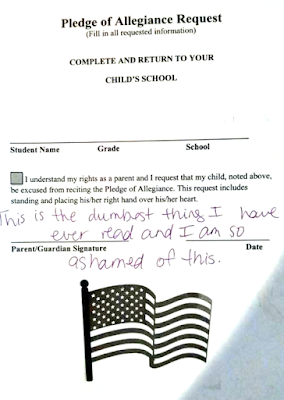 Pledge of Allegiance Request
(Fill in all requested information)
COMPLETE AND RETURN TO YOUR
CHILD'S SCHOOL
Student Name Grade School
I understand my rights as a parent and I request that my child, noted above,
be excused from reciting the Pledge of Allegiance. This request includes
standing and placing his/her right hand over his/her heart.
This is the dumbest thing I have
ever read and I am so
Parent/Guardian Signature Date
ashamed of this.